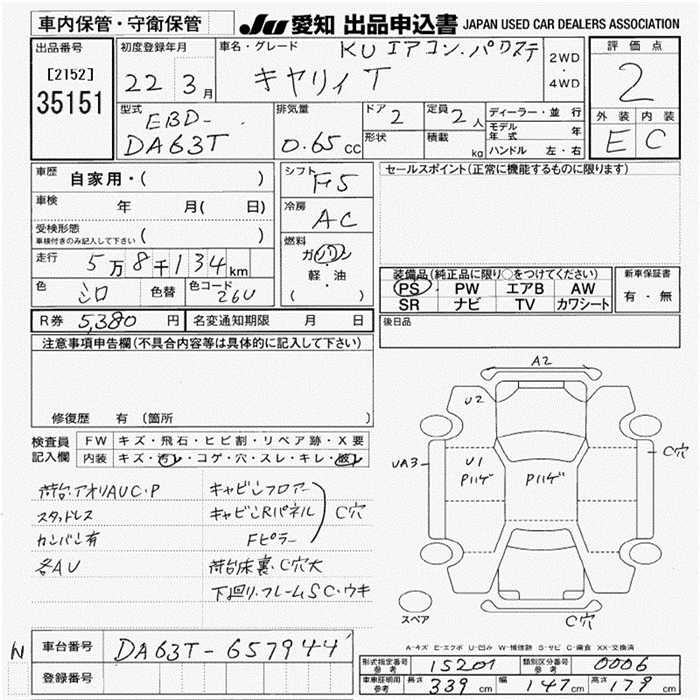 車内保管・守衛保管
JU 愛知 出品申込書 JAPAN USED CAR DEALERS ASSOCIATION
出品番号
[2152]
35151
初度登録年月
22 3月
車名・グレード
KUエアコン.パワステ
キャリィT
2WD
・
4WD
評価点
2
外装 内装
E C
型式
EBD-
DA63T
排気量
0.65 cc
ドア 2
形状
定員 2人
積載 kg
ディーラー・並行
モデル年式 年
ハンドル 左・右
車歴 自家用・( )
車検 年 月( 日)
受検形態
車検付きのみ記入して下さい ( )
走行 5万8千134km
色 シロ 色替 色コード 26U
シフト
F5
冷房
AC
燃料
ガソリン
軽・油
( )
セールスポイント(正常に機能するものに限ります)
装備品(純正品に限り○をつけてください)
PS PW エアB AW
SR ナビ TV カワシート
新車保証書
有・無
R券 5,380 円 名変通知期限 月 日
後日品
注意事項申告欄(不具合内容等は具体的に記入して下さい)
修復歴 有 (箇所 )
検査員
記入欄
FW キズ・飛石・ヒビ割・リペア跡・X要
内装 キズ・汚レ・コゲ・穴・スレ・キレ・破レ
荷台.アオリAUC・P
スタッドレス
カンバン有
各AU
キャビンフロアー
キャビンRパネル
Fピラー
C穴
荷台床裏・C穴大
下廻り・フレームSC・ウキ
A2
U2
UA3
U1
Pハゲ
Pハゲ
C穴
C穴
スペア
A-キズ E-エクボ U-凹み W-補修跡 S-サビ C-腐食 XX-交換済
N
車台番号 DA63T-657944
登録番号
形式指定番号
参考
15201
類別区分番号
参考
0006
車庫証明用
参考
長さ 339 cm 幅 147 cm 高さ 179 cm